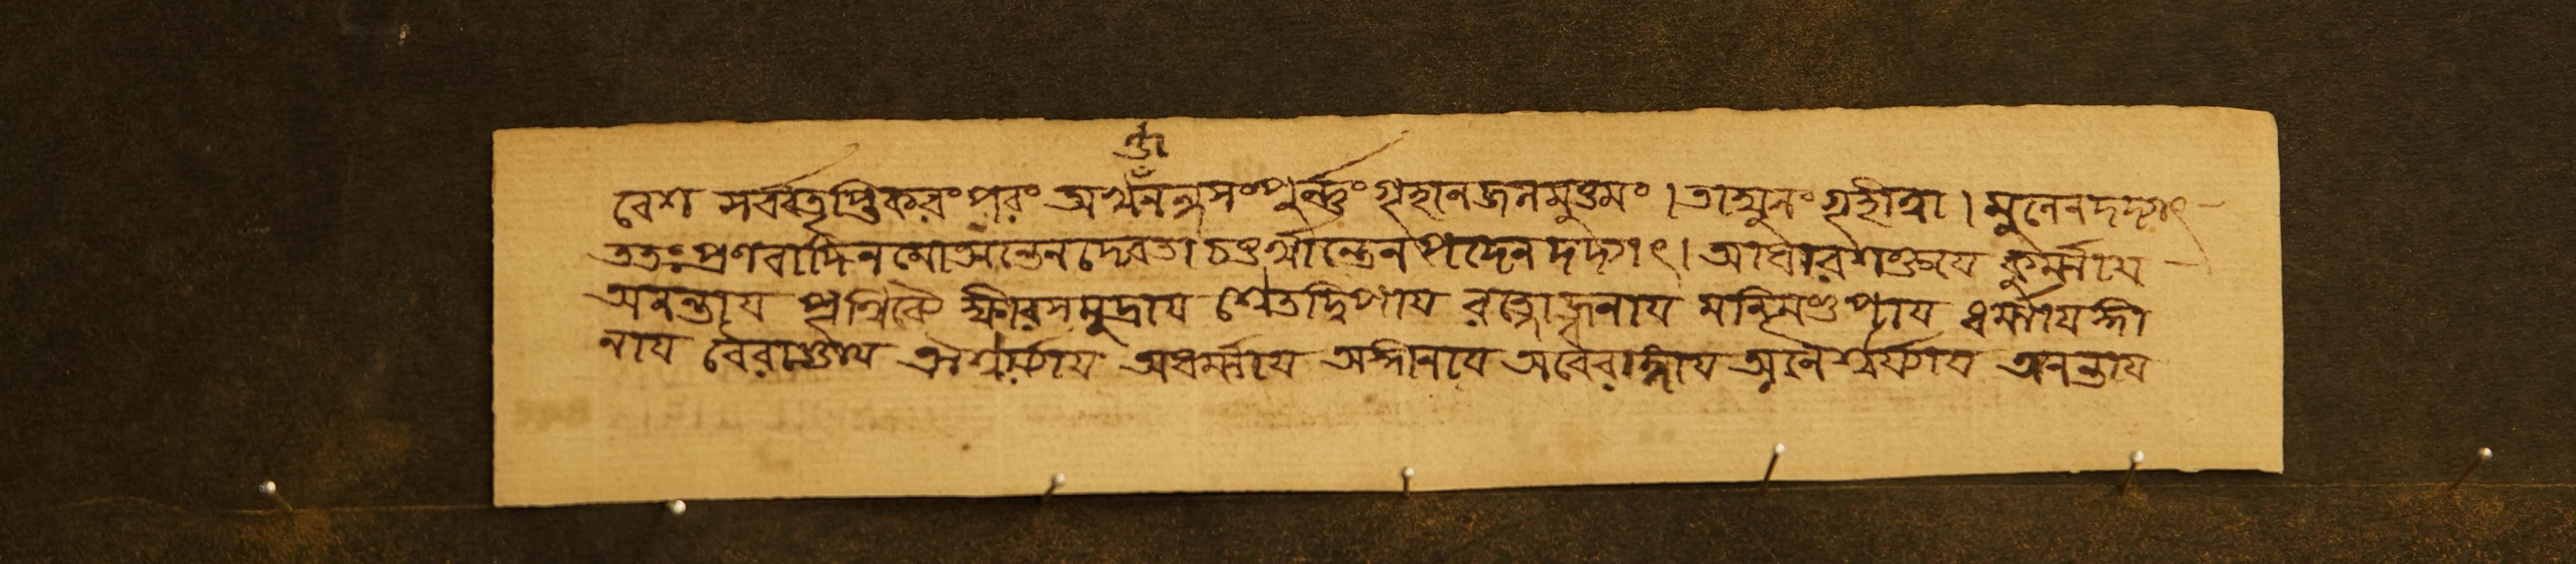 বেশ সর্ব্বতৃপ্তিকরং পরং অখণ্ডানন্দসংপুর্ন্নং গৃহানজলমুত্তমং । তাম্বুলং গৃহীত্বা । মুলেনদদ্যাৎ
ততঃপ্রণবাদিনমোঅন্তেনদেবতাচতুর্থ্যান্তেনপদেনদদ্যাৎ। আধারশক্তয়ে কুর্ম্মায়
অনন্তায় পৃথিব্যৈ ক্ষীরসমুদ্রায় শ্বেতদ্বিপায় মন্নিমণ্ডপায় ধর্ম্মায়জ্ঞা
নায় বৈরাগ্যায় ঐশ্বর্য্যায় অধর্ম্মায় অজ্ঞানায় অবৈরাগ্যায় অনৈশ্বর্য্যায় অনন্তায়